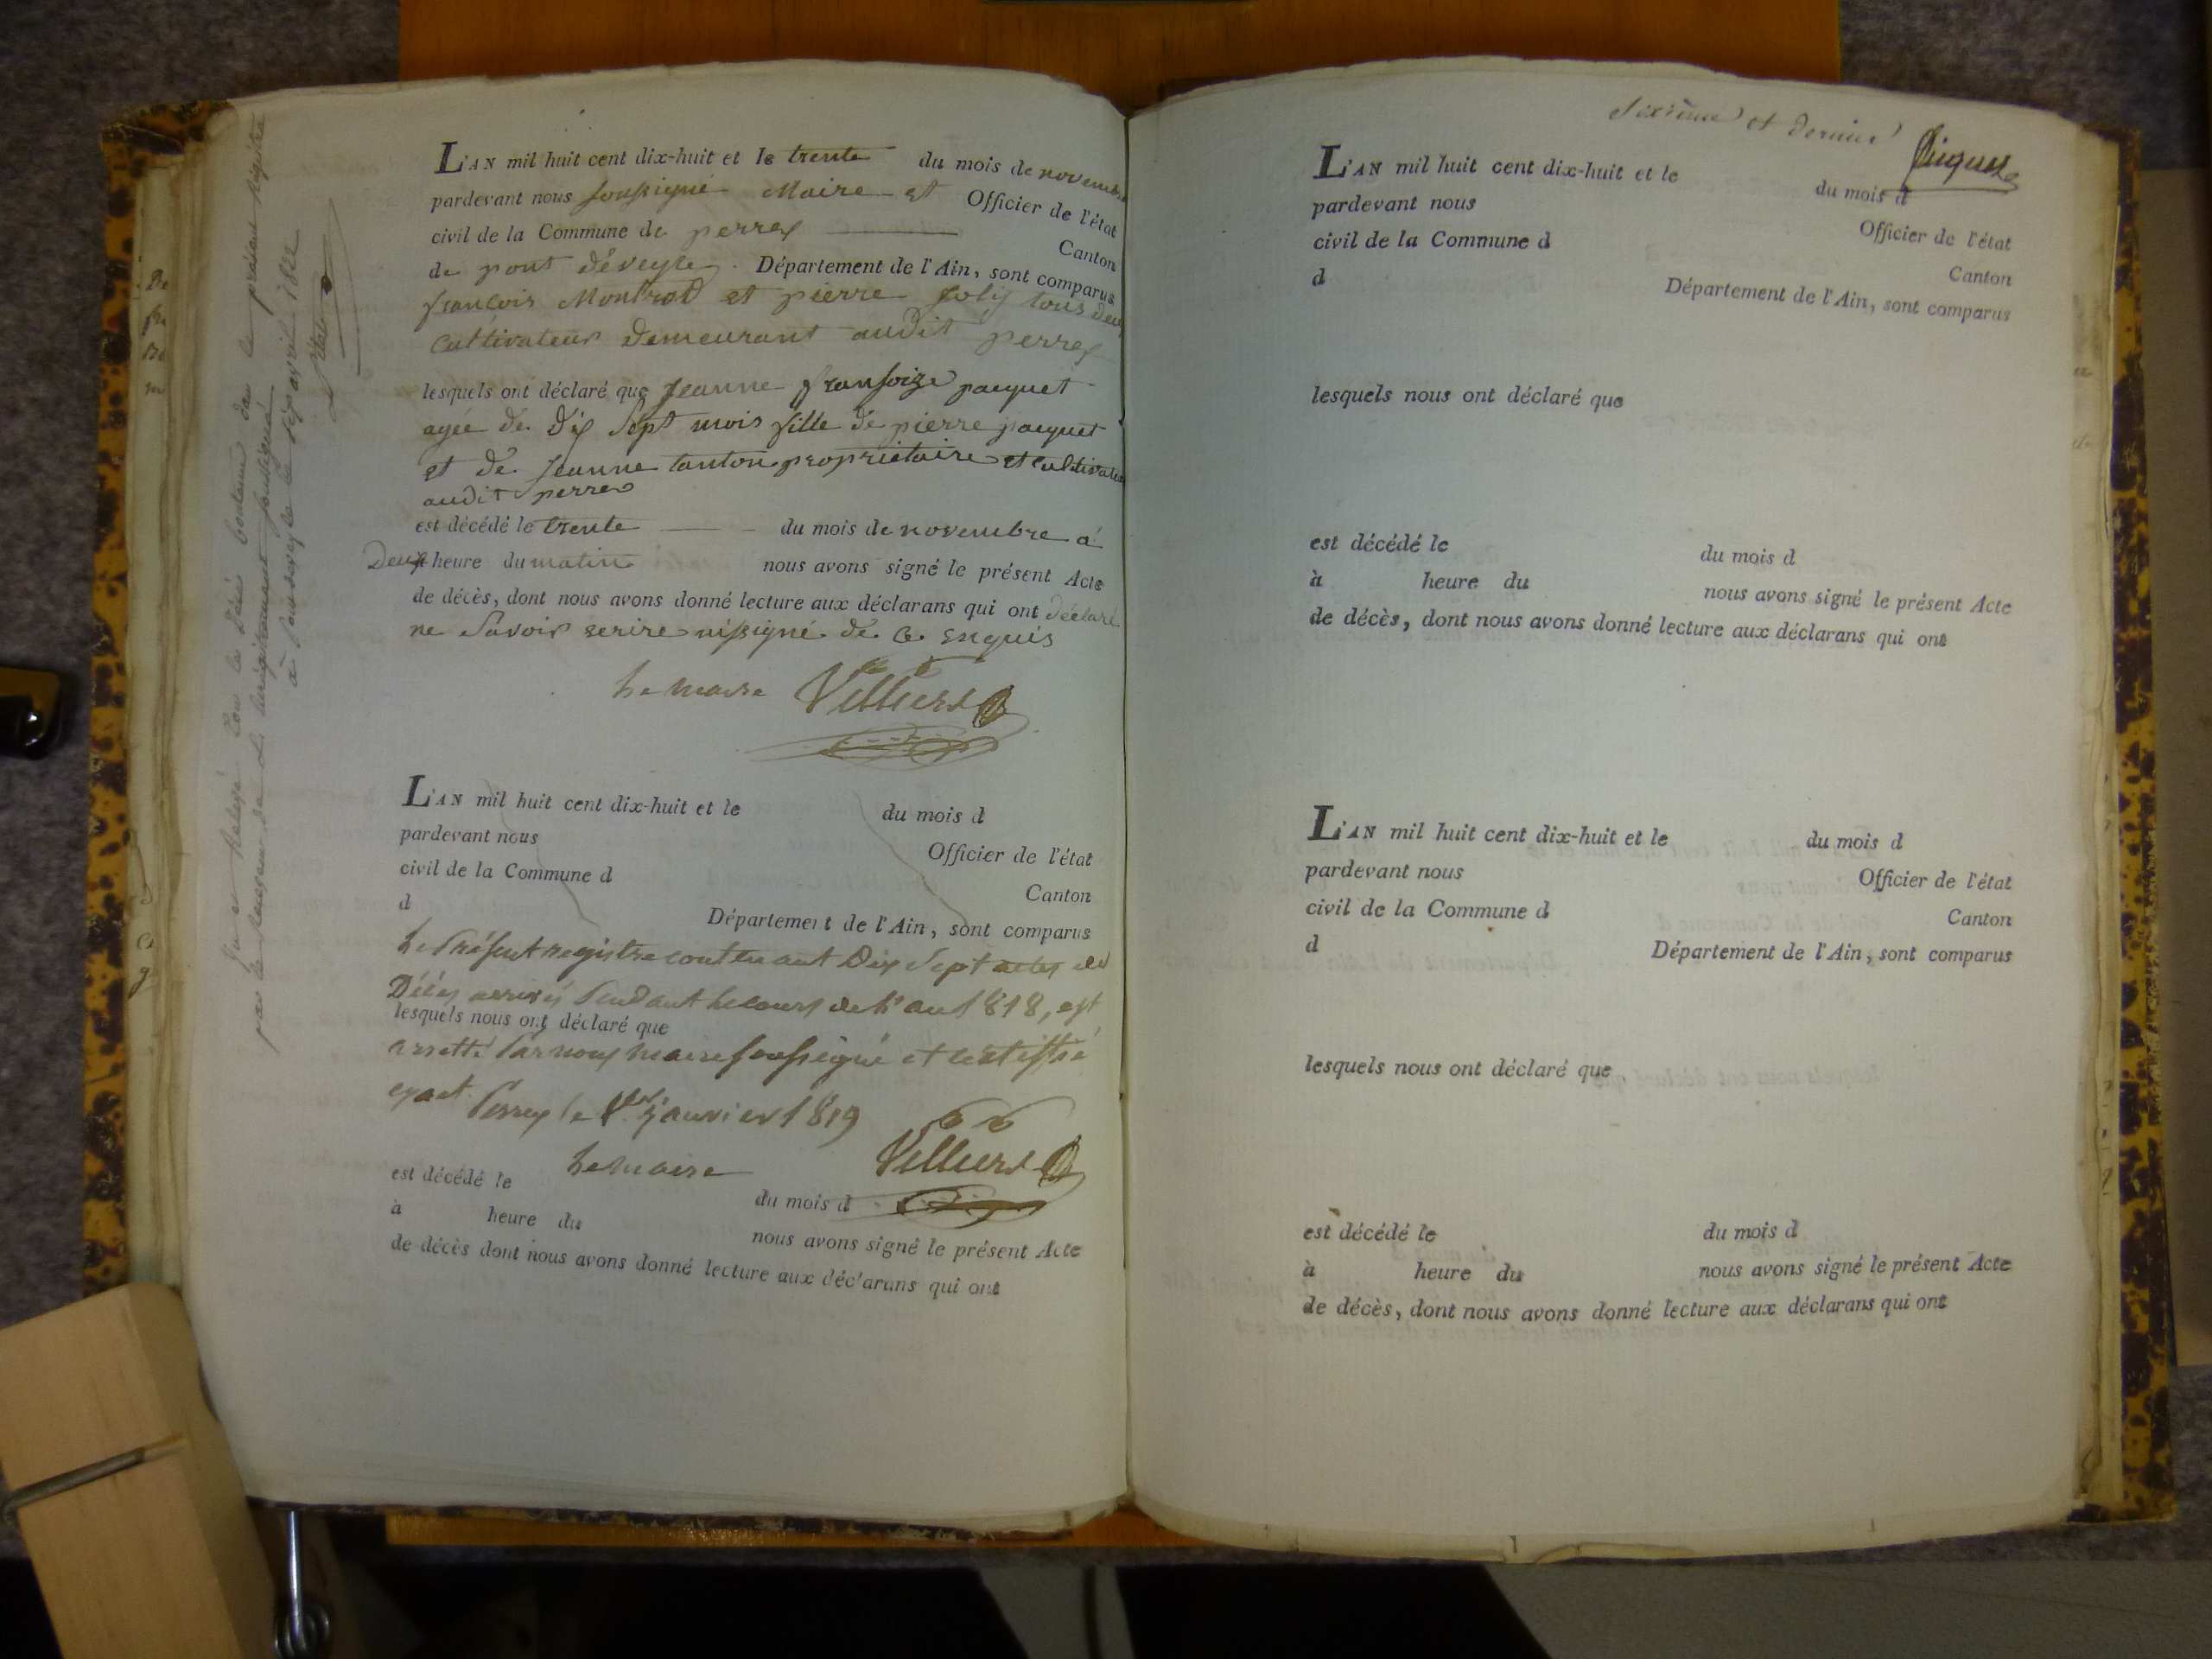 L'AN mil huit cent dix-huit et le trente du mois de novembre
pardevant nous soussigné Maire et Officier de l'état
civil de la Commune de perrex Canton
de pont deveyle Département de l'Ain, sont comparus
françois Montrad et pierre joly tous deux
cultivateur demeurant audit perrex
lesquels ont déclaré que jeanne fransoize pacquet
agée de dix sept mois fille de pierre pacquet
et de jeanne tanton propriétaire et cultivateur
audit perrex
est décédé le trente du mois de novembre à
Deux heure du matin nous avons signé le présent Acte
de décès, dont nous avons donné lecture aux déclarans qui ont déclaré
ne savoir écrire ni signé de ce enquis
le maire Villiers
L'AN mil huit cent dix-huit et le du mois d
pardevant nous Officier de l'état
civil de la Commune d Canton
d Département de l'Ain, sont comparus
le Présent registre contenant Dix Sept actes de
Décès arrivés Pendant le cours de l'an 1818, est
lesquels nous ont déclaré que
arretté Par nous maire soussigné et certiffié
exact Perrex le 1er janvier 1819
le maire Villiers
est décédé le du mois d
à heure du nous avons signé le présent Acte
de décès dont nous avons donné lecture aux déclarans qui ont
relevé tous les Décès contenus dans le présent Registre
par le receveur de l'enregistrement soussigné
à pontdeveyle le avril 1822
Sixième et dernier
L'AN mil huit cent dix-huit et le du mois d
pardevant nous Officier de l'état
civil de la Commune d Canton
d Département de l'Ain, sont comparus
lesquels nous ont déclaré que
est décédé le du mois d
à heure du nous avons signé le présent Acte
de décès, dont nous avons donné lecture aux déclarans qui ont
L'AN mil huit cent dix-huit et le du mois d
pardevant nous Officier de l'état
civil de la Commune d Canton
d Département de l'Ain, sont comparus
lesquels nous ont déclaré que
est décédé le du mois d
à heure du nous avons signé le présent Acte
de décès, dont nous avons donné lecture aux déclarans qui ont